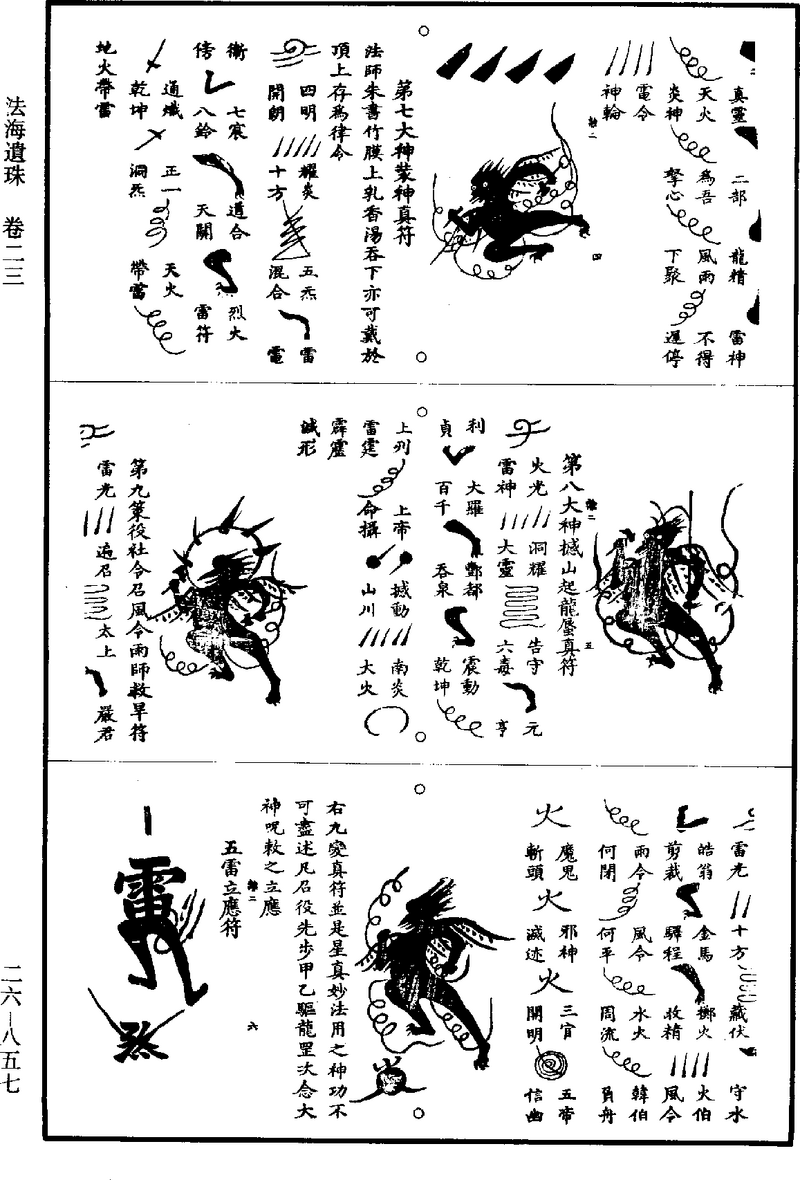 法海遺珠 卷二三
真靈 二部 龍精 雷神
天火 為吾 風雨 不得
炎神 心 下聚 遲停
電令
神輪
四
第七大神裝神真符
法師朱書竹膜上乳香湯吞下亦可戴於
頂上存為律令
四明 耀炎 五炁 雷
開朗 十方 混合 電
衝 七宸 道合 烈火
傍 八鈴 天關 雷符
通熾 正一 天火
乾坤 洞炁 帶雷
地火帶雷
第八大神撼山起龍蜃真符
五
火光 洞耀 告守 元
雷神 大靈 六毒 亨
利 大羅 酆都 震動
貞 百千 吞泉 乾坤
上列 上帝 撼動 南炎
雷霆 命攝 山川 大火
霹靂
滅形
第九策役社令召風令雨師救旱符
雷光 遍召 太上 嚴君
雷光 十方 藏伏 守水
皓翁 金馬 擲火 火伯
剪裁 驛程 收精 風令
雨令 風令 水火 韓伯
何閉 何平 周流 負舟
火 火 火
魔鬼 邪神 三官 五帝
斬頭 滅迹 開明 信幽
右九變真符並是星真妙法用之神功不
可盡述凡召役先步甲乙驅龍罡次念大
神呪敕之立應
六
五雷立應符
雷
炁
二六—八五七